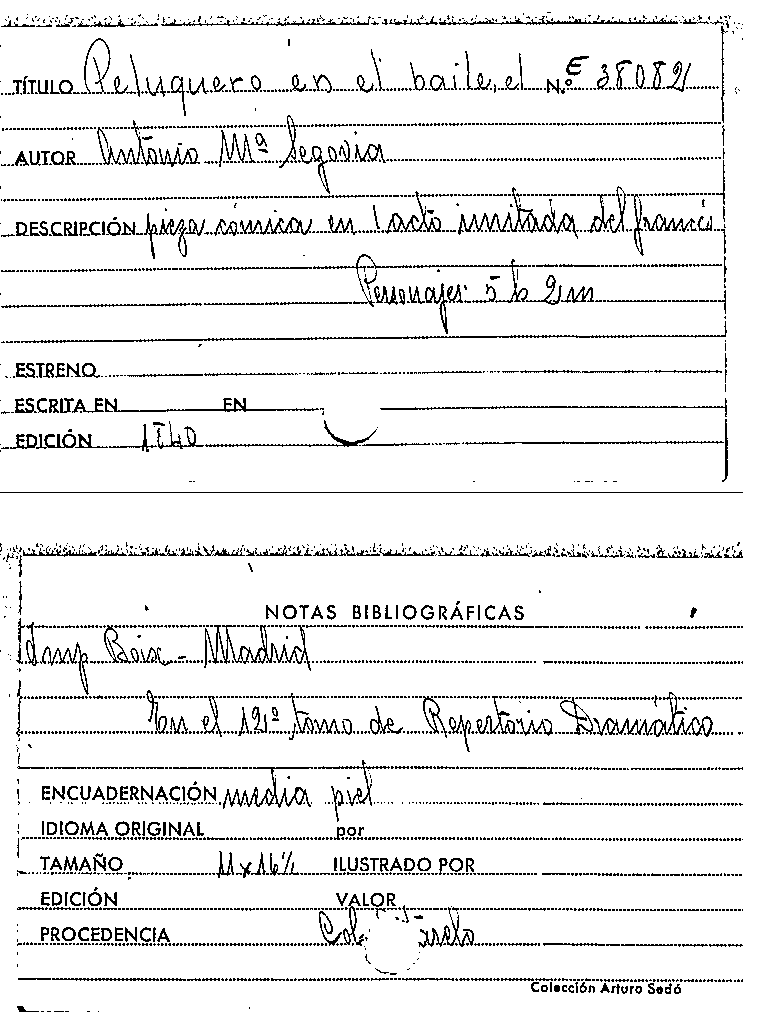 TÍTULO Peluquero en el baile, el N.º E 38082
AUTOR Antonio Mª Segovia
DESCRIPCIÓN pieza cómica en 1 acto imitada del francés
Personajes: 5 h 2 m
ESTRENO
ESCRITA EN EN
EDICIÓN 1840
NOTAS BIBLIOGRÁFICAS
Imp Boix - Madrid
En el 12º tomo de Repertorio Dramático
ENCUADERNACIÓN media piel
IDIOMA ORIGINAL por
TAMAÑO 11 x 16½ ILUSTRADO POR
EDICIÓN VALOR
PROCEDENCIA
Colección Arturo Sedó